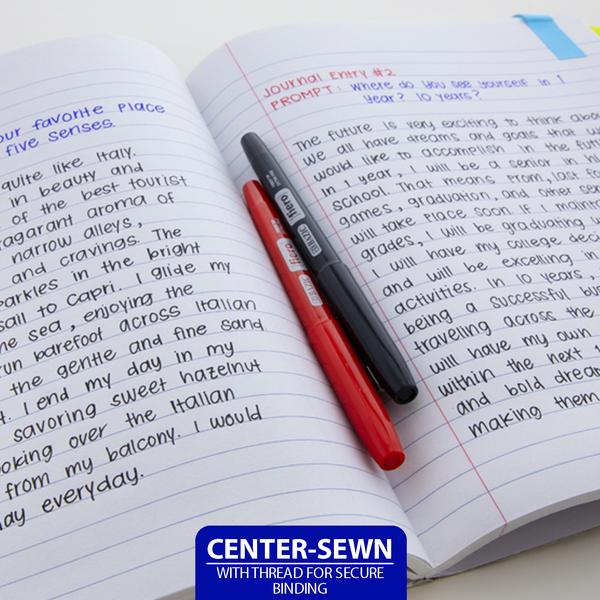 our favorite Place
five senses.
quite like Italy.
in beauty and
of the best tourist
ragarant aroma of
narrow alleys,
and cravings. The
parkles in the bright
sail to Capri. I glide my
he sea, enjoying the
run barefoot across Italian
the gentle and fine sand
t. I end my day in my
savoring sweet hazelnut
ooking over the Italian
from my balcony. I would
day everyday.
Journal Entry #2
PROMPT: Where do you see yourself in 1
Year? 10 years?
The future is very exciting to think abou
we all have dreams and goals that w
would like to accomplish in the futu
In 1 year, I will be a senior in hi
school. That means Prom, last fo
games, graduation, and other sen
will take place soon. If I maintain
grades, I will be graduating w
I will have my college deci
and will be excelling in
activities. In 10 years,
being a successful bus
traveling across the
will have my own
within the next 1
and bold dream
making them
hero
hero
CENTER-SEWN
WITH THREAD FOR SECURE
BINDING